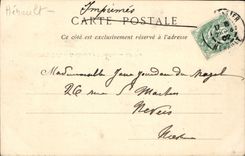 Hérault
Imprimés
CARTE POSTALE
Ce côté est exclusivement réservé à l'adresse
Mademoiselle Jane Gondan du Magel
26 rue St Martin
Nevers
Nièvre